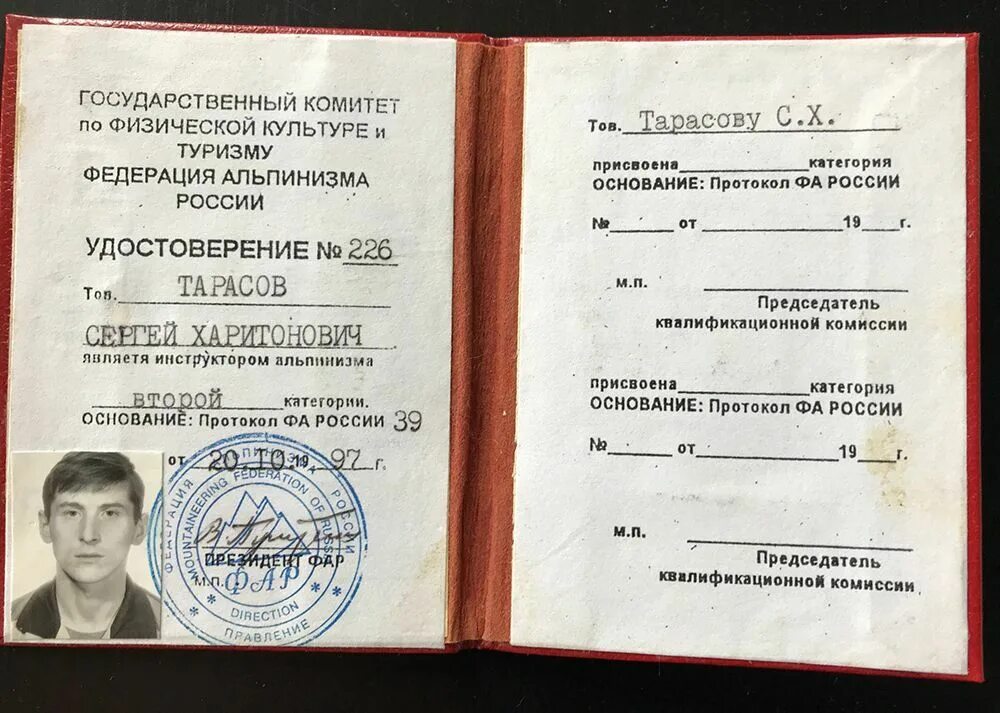 ГОСУДАРСТВЕННЫЙ КОМИТЕТ
по ФИЗИЧЕСКОЙ КУЛЬТУРЕ и
ТУРИЗМУ
ФЕДЕРАЦИЯ АЛЬПИНИЗМА
РОССИИ
УДОСТОВЕРЕНИЕ № 226
Тов. ТАРАСОВ
СЕРГЕЙ ХАРИТОНОВИЧ
являетя инструктором альпинизма
второй категории.
ОСНОВАНИЕ: Протокол ФА РОССИИ 39
от 20.10.19 97 г.
ФЕДЕРАЦИЯ АЛЬПИНИЗМА РОССИИ
MOUNTAINEERING FEDERATION OF RUSSIA
ПРЕЗИДЕНТ ФАР
М.П.
ФАР
DIRECTION
ПРАВЛЕНИЕ
Тов. Тарасову С.Х.
присвоена категория
ОСНОВАНИЕ: Протокол ФА РОССИИ
№ от 19 г.
м.п.
Председатель
квалификационной комиссии
присвоена категория
ОСНОВАНИЕ: Протокол ФА РОССИИ
№ от 19 г.
м.п.
Председатель
квалификационной комиссии